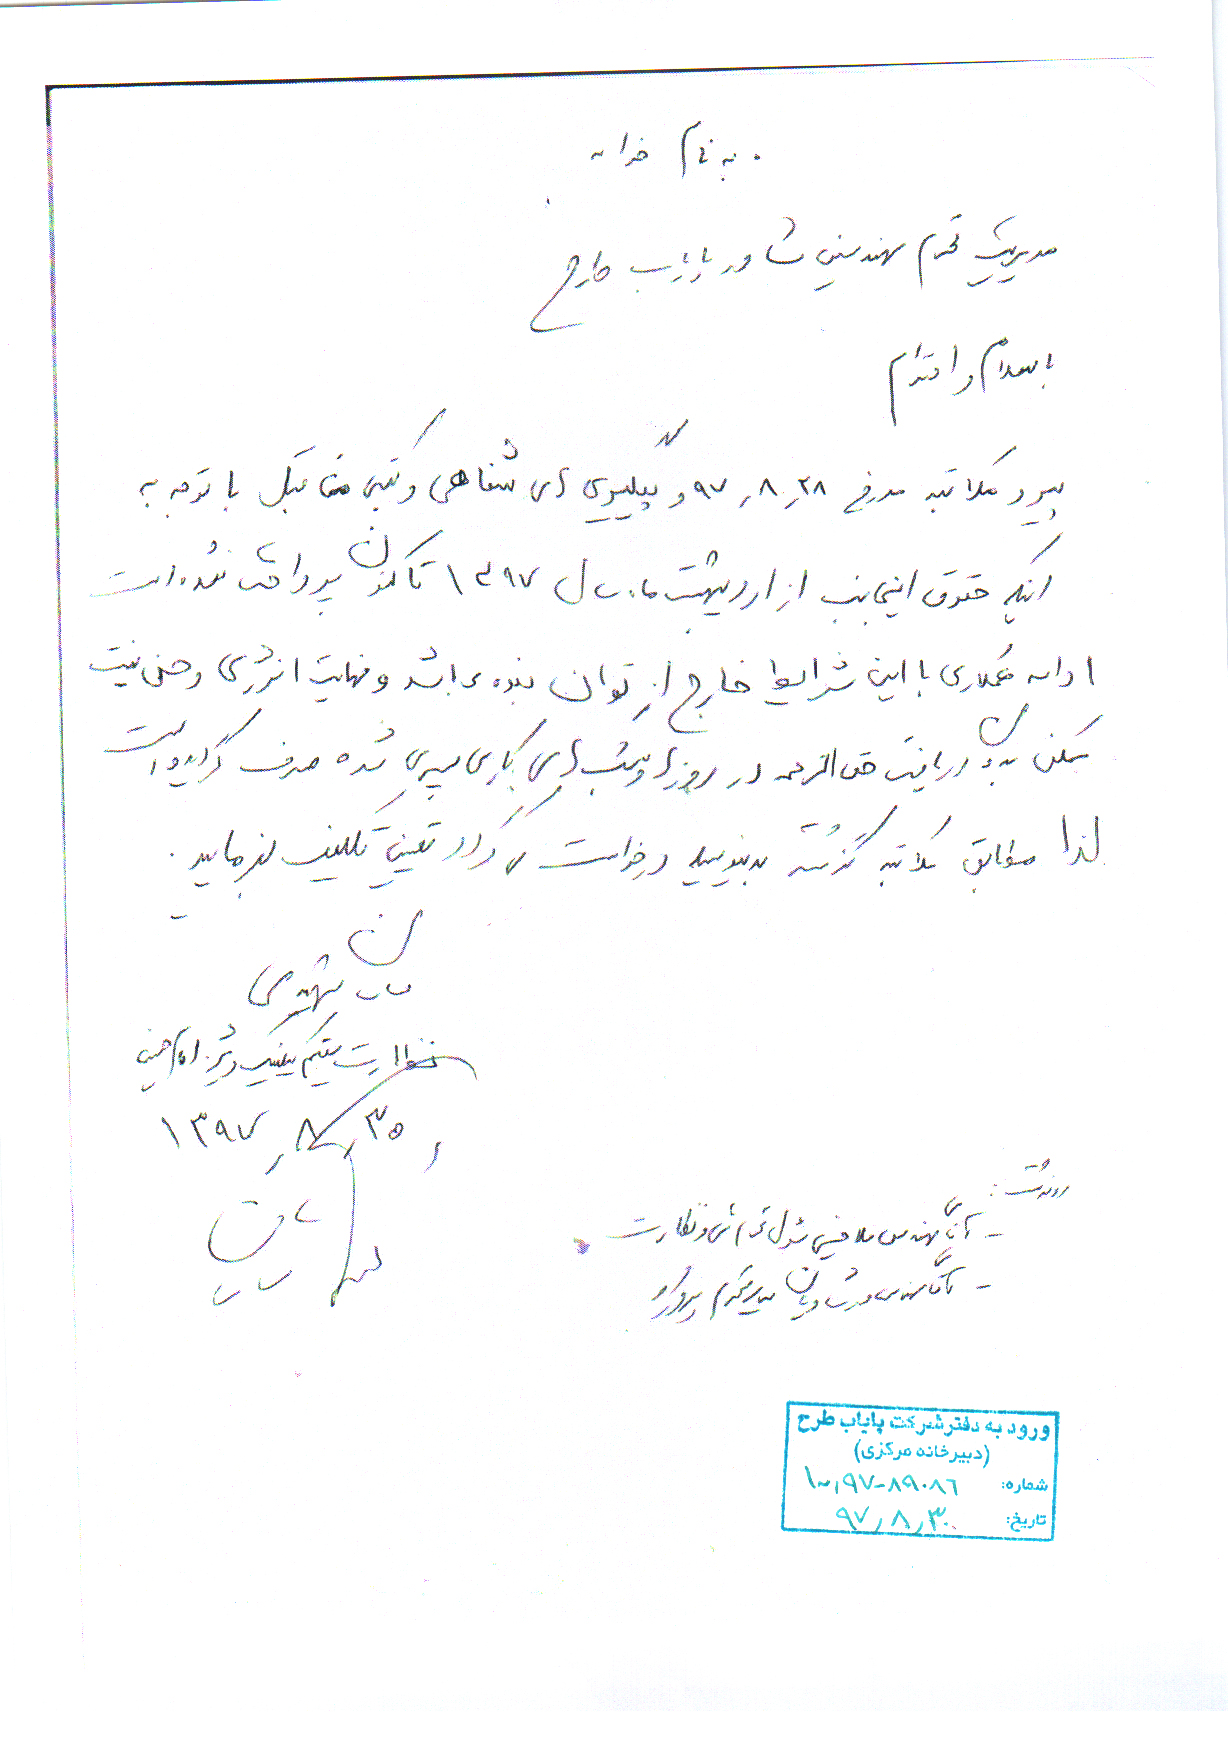 به نام خدا
مدیریت محترم مهندسین مشاور پایاب طرح
با سلام و احترام
پیرو مکاتبه مورخ ۹۷٫۸٫۲۸ و پیگیری های شفاهی و کتبی ماقبل با توجه به
اینکه حقوق اینجانب از اردیبهشت ماه سال ۱۳۹۷ تا کنون پرداخت نشده است
ادامه همکاری با این شرایط خارج از توان بنده می باشد و نهایت انرژی و حسن نیت
ممکن بدون دریافت حق الزحمه در روزها و شب های کاری سپری شده صرف گردیده است
لذا مطابق مکاتبه گذشته بدینوسیله درخواست می گردد تعیین تکلیف بفرمایید.
نظارت مقیم
۱۳۹۷٫۸٫۳۰
رونوشت:
- آقای مهندس محترم نظارت
- آقای مهندس مدیر محترم پروژه
ورود به دفتر شرکت پایاب طرح
(دبیرخانه مرکزی)
شماره: ۱۰٫۹۷-۸۹۰۸۶
تاریخ: ۹۷٫۸٫۳۰